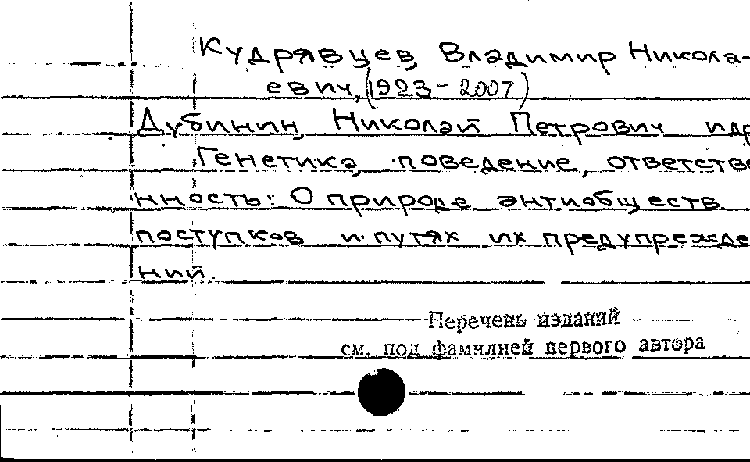 Кудрявцев, Владимир Никола-
евич, (1923-2007)
Дубинин, Николай Петрович и др
Генетика, поведение, ответстве
нность: О природе антиобществ.
поступков и путях их предупрежде
ний.
Перечень изданий
см. под фамилией первого автора